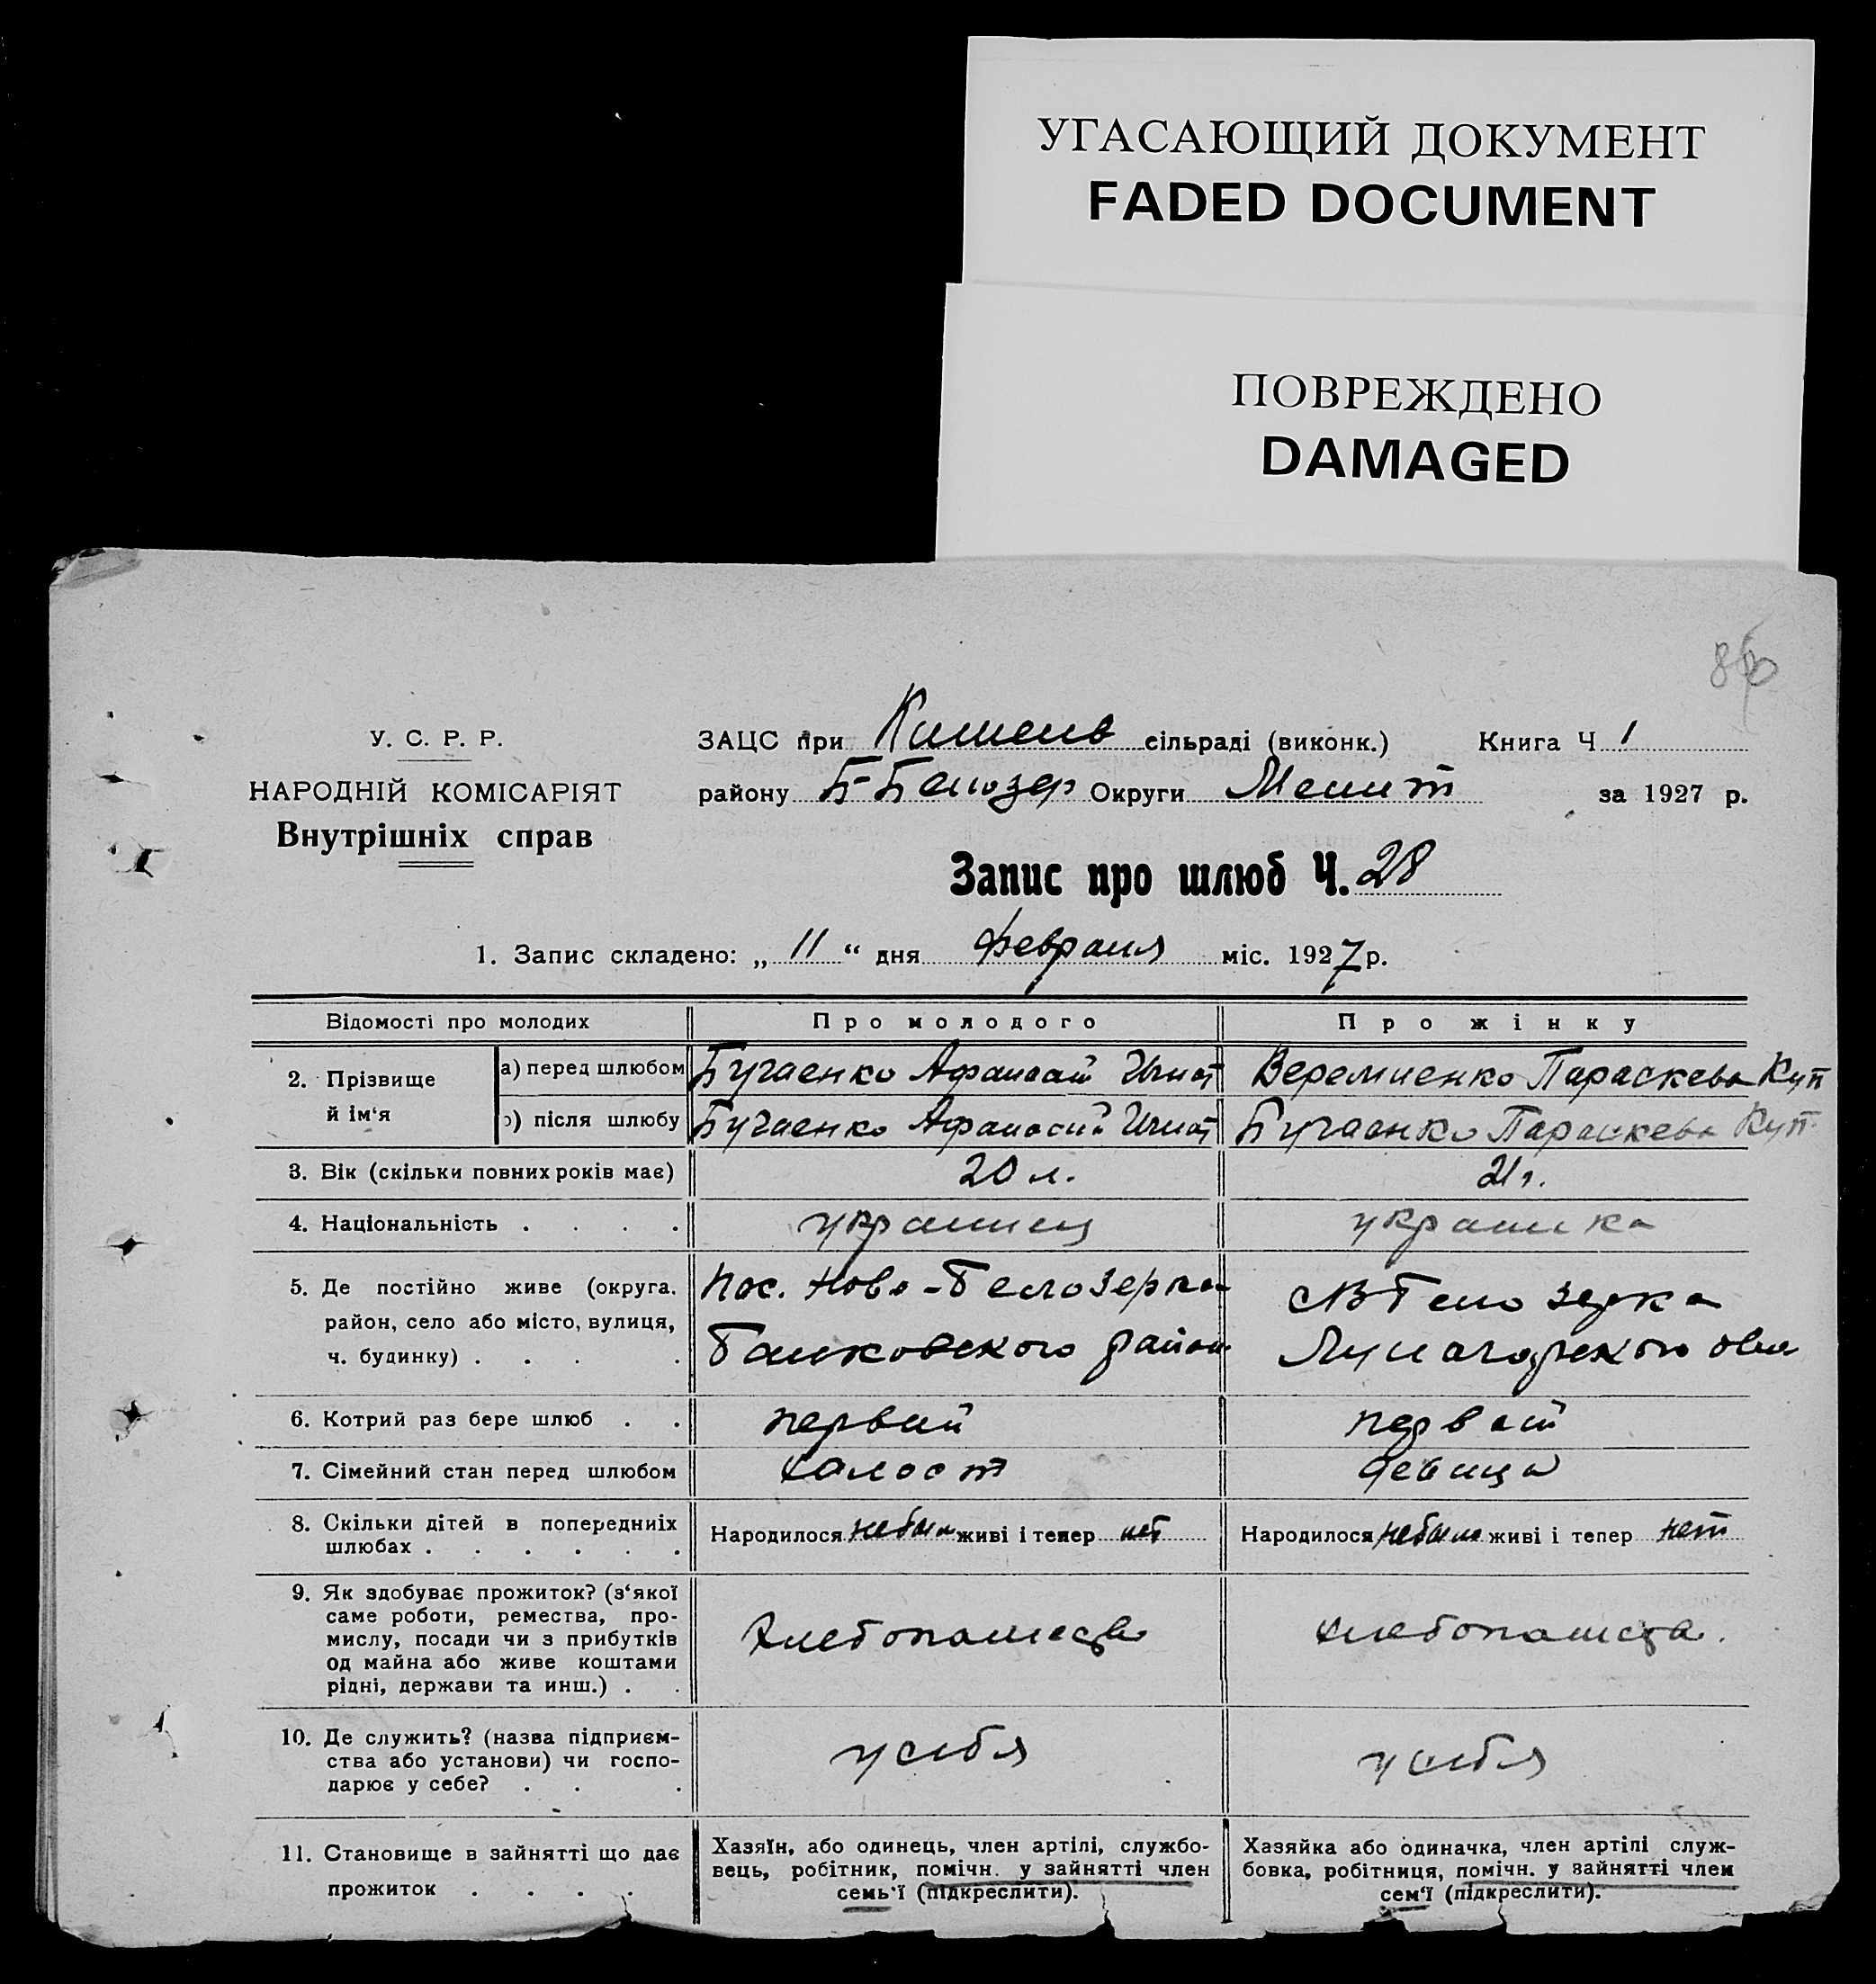 УГАСАЮЩИЙ ДОКУМЕНТ
FADED DOCUMENT
ПОВРЕЖДЕНО
DAMAGED
У. С. Р. Р.
НАРОДНІЙ КОМІСАРІЯТ
Внутрішніх справ
ЗАЦС при сільраді (виконк.) Книга Ч 1
району Б-Белозер Округи Мелит за 1927 р.
Запис про шлюб Ч. 28
1. Запис складено: „ 11 “ дня февраля міс. 1927 р.
Відомості про молодих Про молодого Про жінку
2. Прізвище й ім‘я
а) перед шлюбом Бугаенко Афанасий Игнат Веремиенко Параскева Куп
) після шлюбу Бугаенко Афанасий Игнат Бугаенко Параскева Куп
3. Вік (скільки повних років має) 20 л. 21 г.
4. Національність . . . . украинец украинка
5. Де постійно живе (округа, район, село або місто, вулиця, ч. будинку) . . . .
пос. Ново-Белозерка
района
Белозерка
6. Котрий раз бере шлюб . . первий первий
7. Сімейний стан перед шлюбом холост девица
8. Скільки дітей в попередніх шлюбах . . . . . .
Народилося небыло живі і тепер нет Народилося небыло живі і тепер нет
9. Як здобуває прожиток? (з‘якої
саме роботи, ремества, про-
мислу, посади чи з прибутків
од майна або живе коштами
рідні, держави та инш.) . .
хлебопашества хлебопашества.
10. Де служить? (назва підприєм-
ства або установи) чи госпо-
дарює у себе? . . .
у себя у себя
11. Становище в зайнятті що дає
прожиток . . . .
Хазяїн, або одинець, член артілі, службо-
вець, робітник, помічн. у зайнятті член
семь‘ї (підкреслити).
Хазяйка або одиначка, член артілі служ-
бовка, робітниця, помічн. у зайнятті член
сем‘ї (підкреслити).